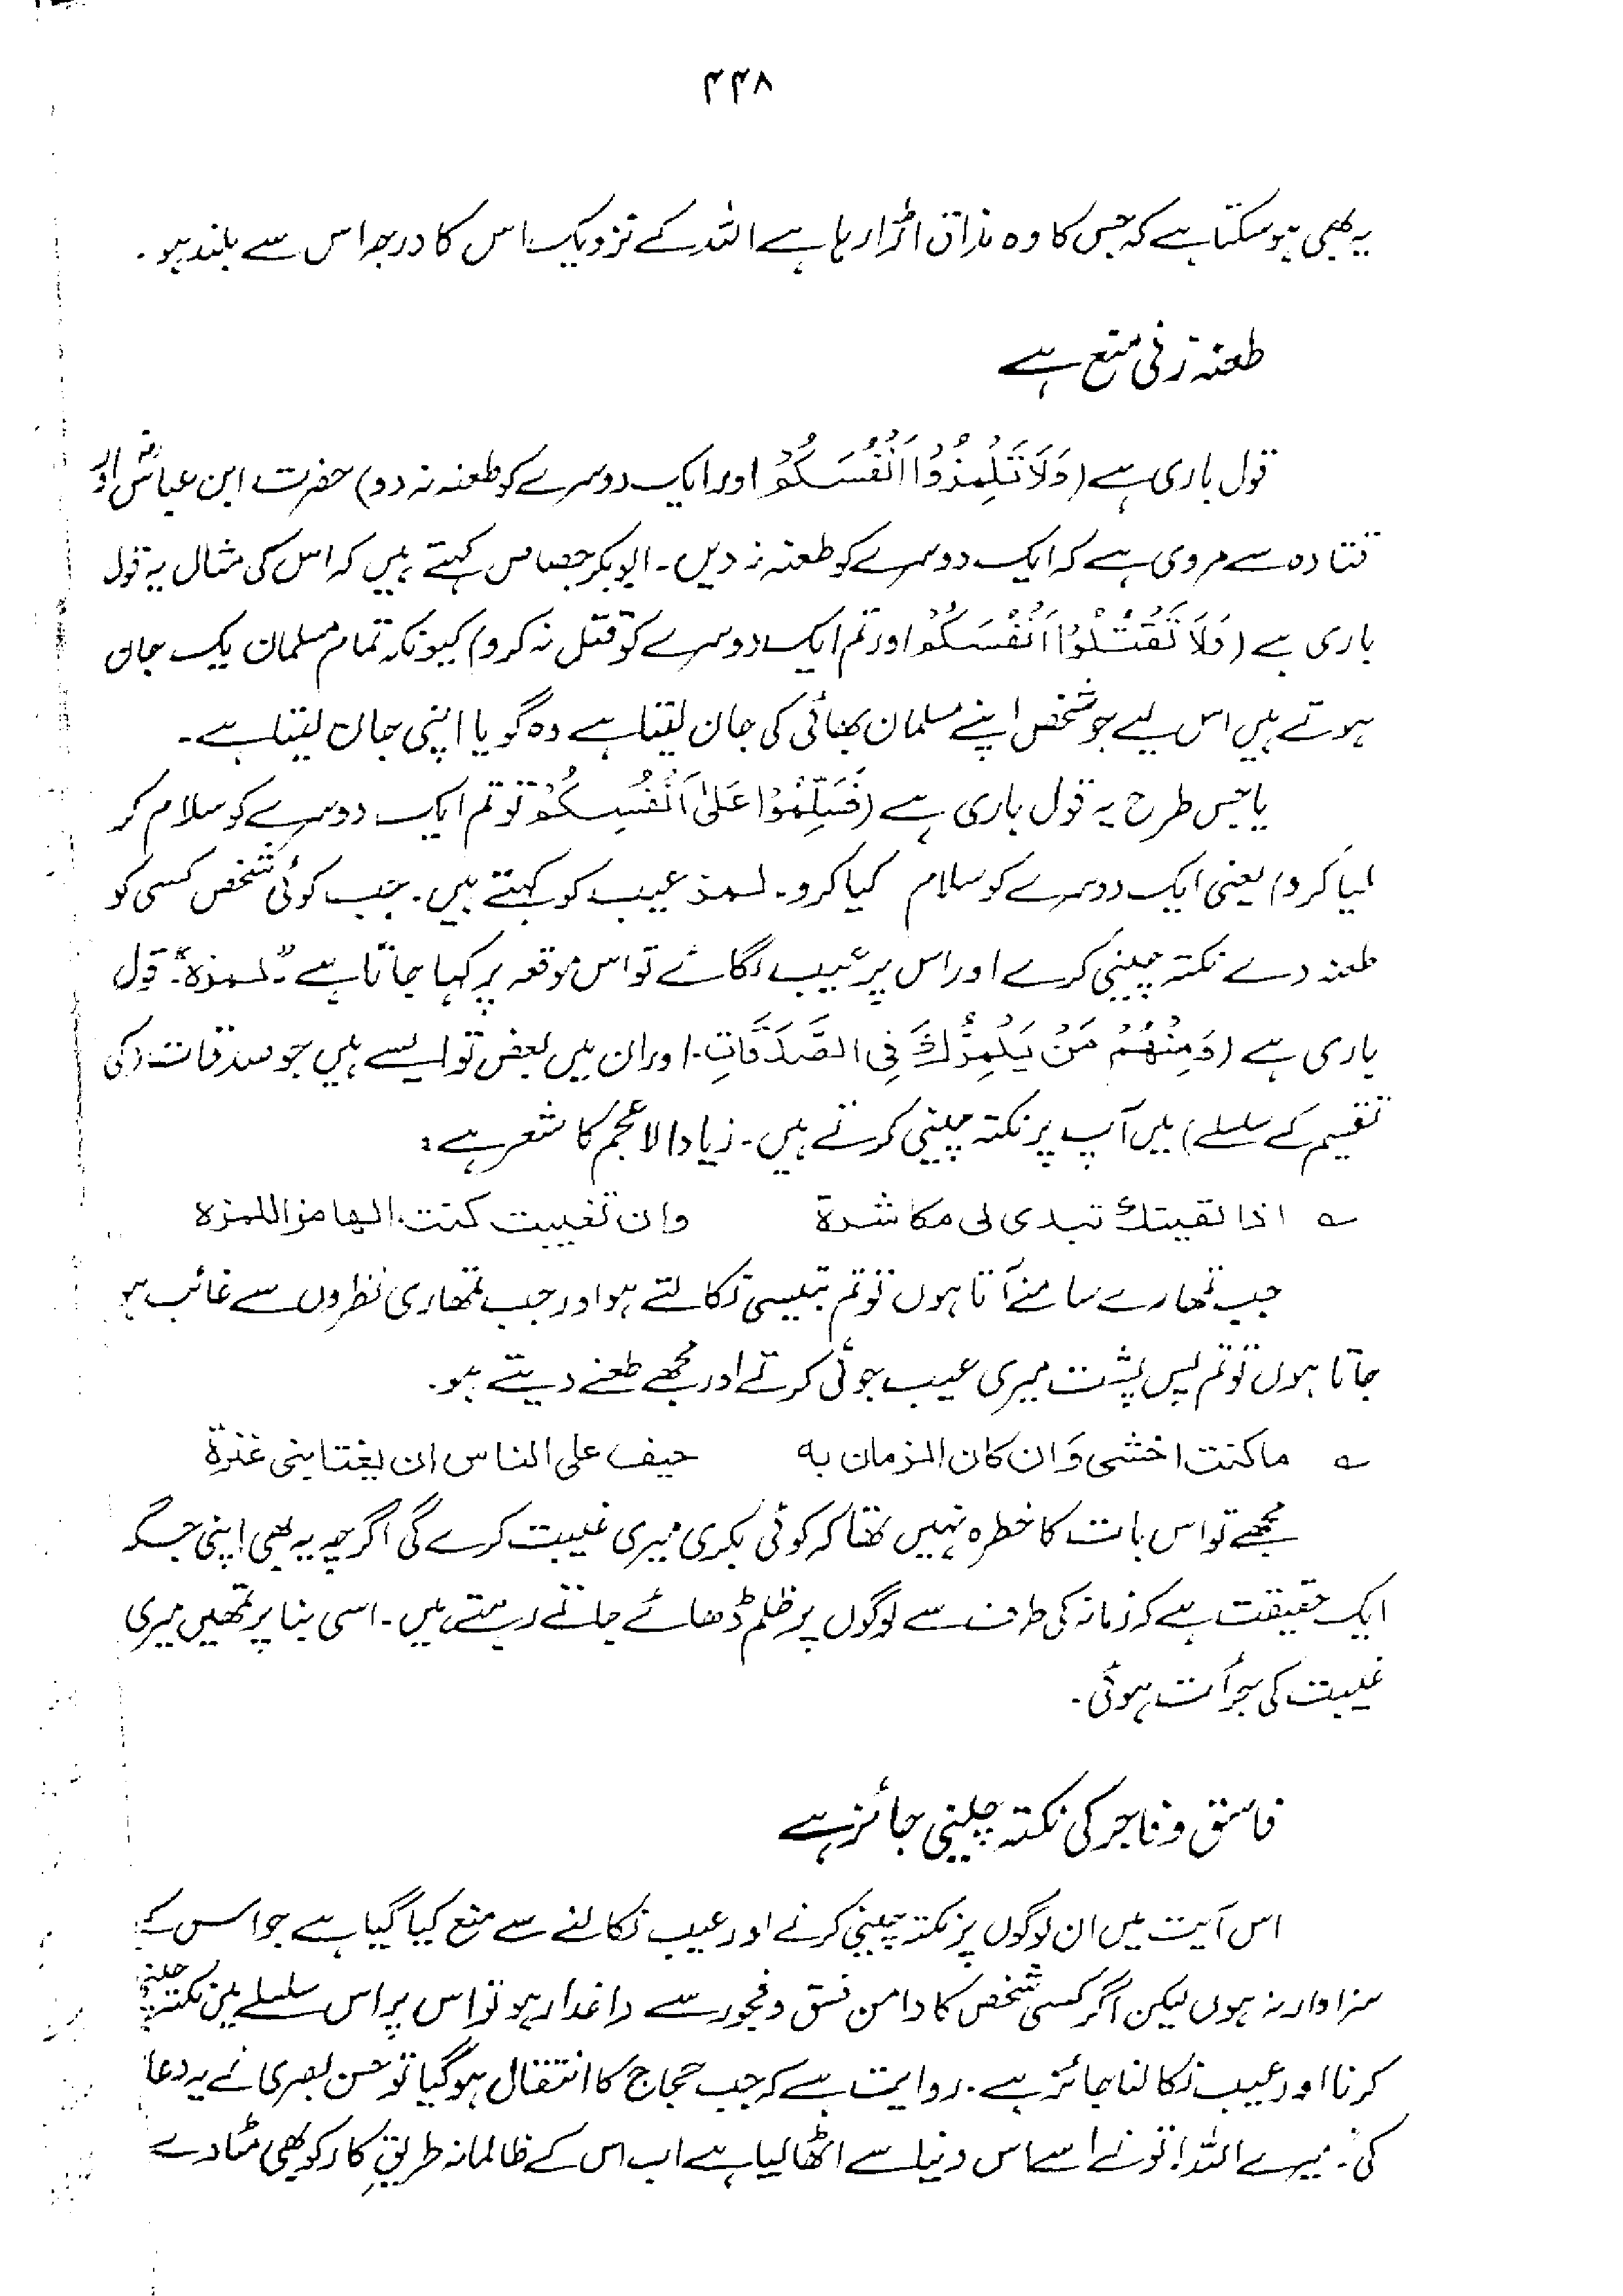 ۴۴۸
یہ بھی ہو سکتا ہے کہ جس کا وہ مذاق اڑا رہا ہے اللہ کے نزدیک اس کا درجہ اس سے بلند ہو۔
طعنہ زنی منع ہے
قول باری ہے (وَلَا تَلْمِزُوْا اَنْفُسَكُمْ اور ایک دوسرے کو طعنہ نہ دو) حضرت ابن عباسؓ اور
قتادہ سے مروی ہے کہ ایک دوسرے کو طعنہ نہ دیں۔ ابوبکر جصاص کہتے ہیں کہ اس کی مثال یہ قول
باری ہے (وَلَا تَقْتُلُوْا اَنْفُسَكُمْ اور تم ایک دوسرے کو قتل نہ کرو) کیونکہ تمام مسلمان یک جان
ہوتے ہیں اس لیے جو شخص اپنے مسلمان بھائی کی جان لیتا ہے وہ گویا اپنی جان لیتا ہے۔
یا جس طرح یہ قول باری ہے (فَسَلِّمُوْا عَلٰى اَنْفُسِكُمْ تو تم ایک دوسرے کو سلام کر
لیا کرو) یعنی ایک دوسرے کو سلام کیا کرو۔ لمز عیب کو کہتے ہیں۔ جب کوئی شخص کسی کو
طعنہ دے نکتہ چینی کرے اور اس پر عیب لگائے تو اس موقعہ پر کہا جاتا ہے "لمزہ"۔ قول
باری ہے (وَمِنْهُمْ مَنْ يَلْمِزُكَ فِى الصَّدَقَاتِ۔ اور ان میں بعض تو ایسے ہیں جو صدقات (کی
تقسیم کے سلسلے) میں آپ پر نکتہ چینی کرتے ہیں۔ زیاد الاعجم کا شعر ہے:
؎ اذا لقيتك تبدى لى مكاشرة وان تغيبت كنت الهامز اللمزه
جب تمھارے سامنے آتا ہوں تو تم بتیسی نکالتے ہو اور جب تمھاری نظروں سے غائب ہو
جاتا ہوں تو تم پس پشت میری عیب جوئی کرتے اور مجھے طعنے دیتے ہو۔
؎ ما كنت اخشى وَان كان الزمان به حيف على الناس ان يغتابنى عنزة
مجھے تو اس بات کا خطرہ نہیں تھا کہ کوئی بکری میری غیبت کرے گی اگرچہ یہ بھی اپنی جگہ
ایک حقیقت ہے کہ زمانہ کی طرف سے لوگوں پر ظلم ڈھائے جاتے رہتے ہیں۔ اسی بنا پر تمھیں میری
غیبت کی جرأت ہوئی۔
فاسق و فاجر کی نکتہ چینی جائز ہے
اس آیت میں ان لوگوں پر نکتہ چینی کرنے اور عیب نکالنے سے منع کیا گیا ہے جو اس کے
سزاوار نہ ہوں لیکن اگر کسی شخص کا دامن فسق و فجور سے داغدار ہو تو اس پر اس سلسلے میں نکتہ چینی
کرنا اور عیب نکالنا جائز ہے۔ روایت ہے کہ جب حجاج کا انتقال ہو گیا تو حسن بصری نے یہ دعا
کی: میرے اللہ! تو نے اسے اس دنیا سے اٹھا لیا ہے اب اس کے ظالمانہ طریقِ کار کو بھی مٹا دے